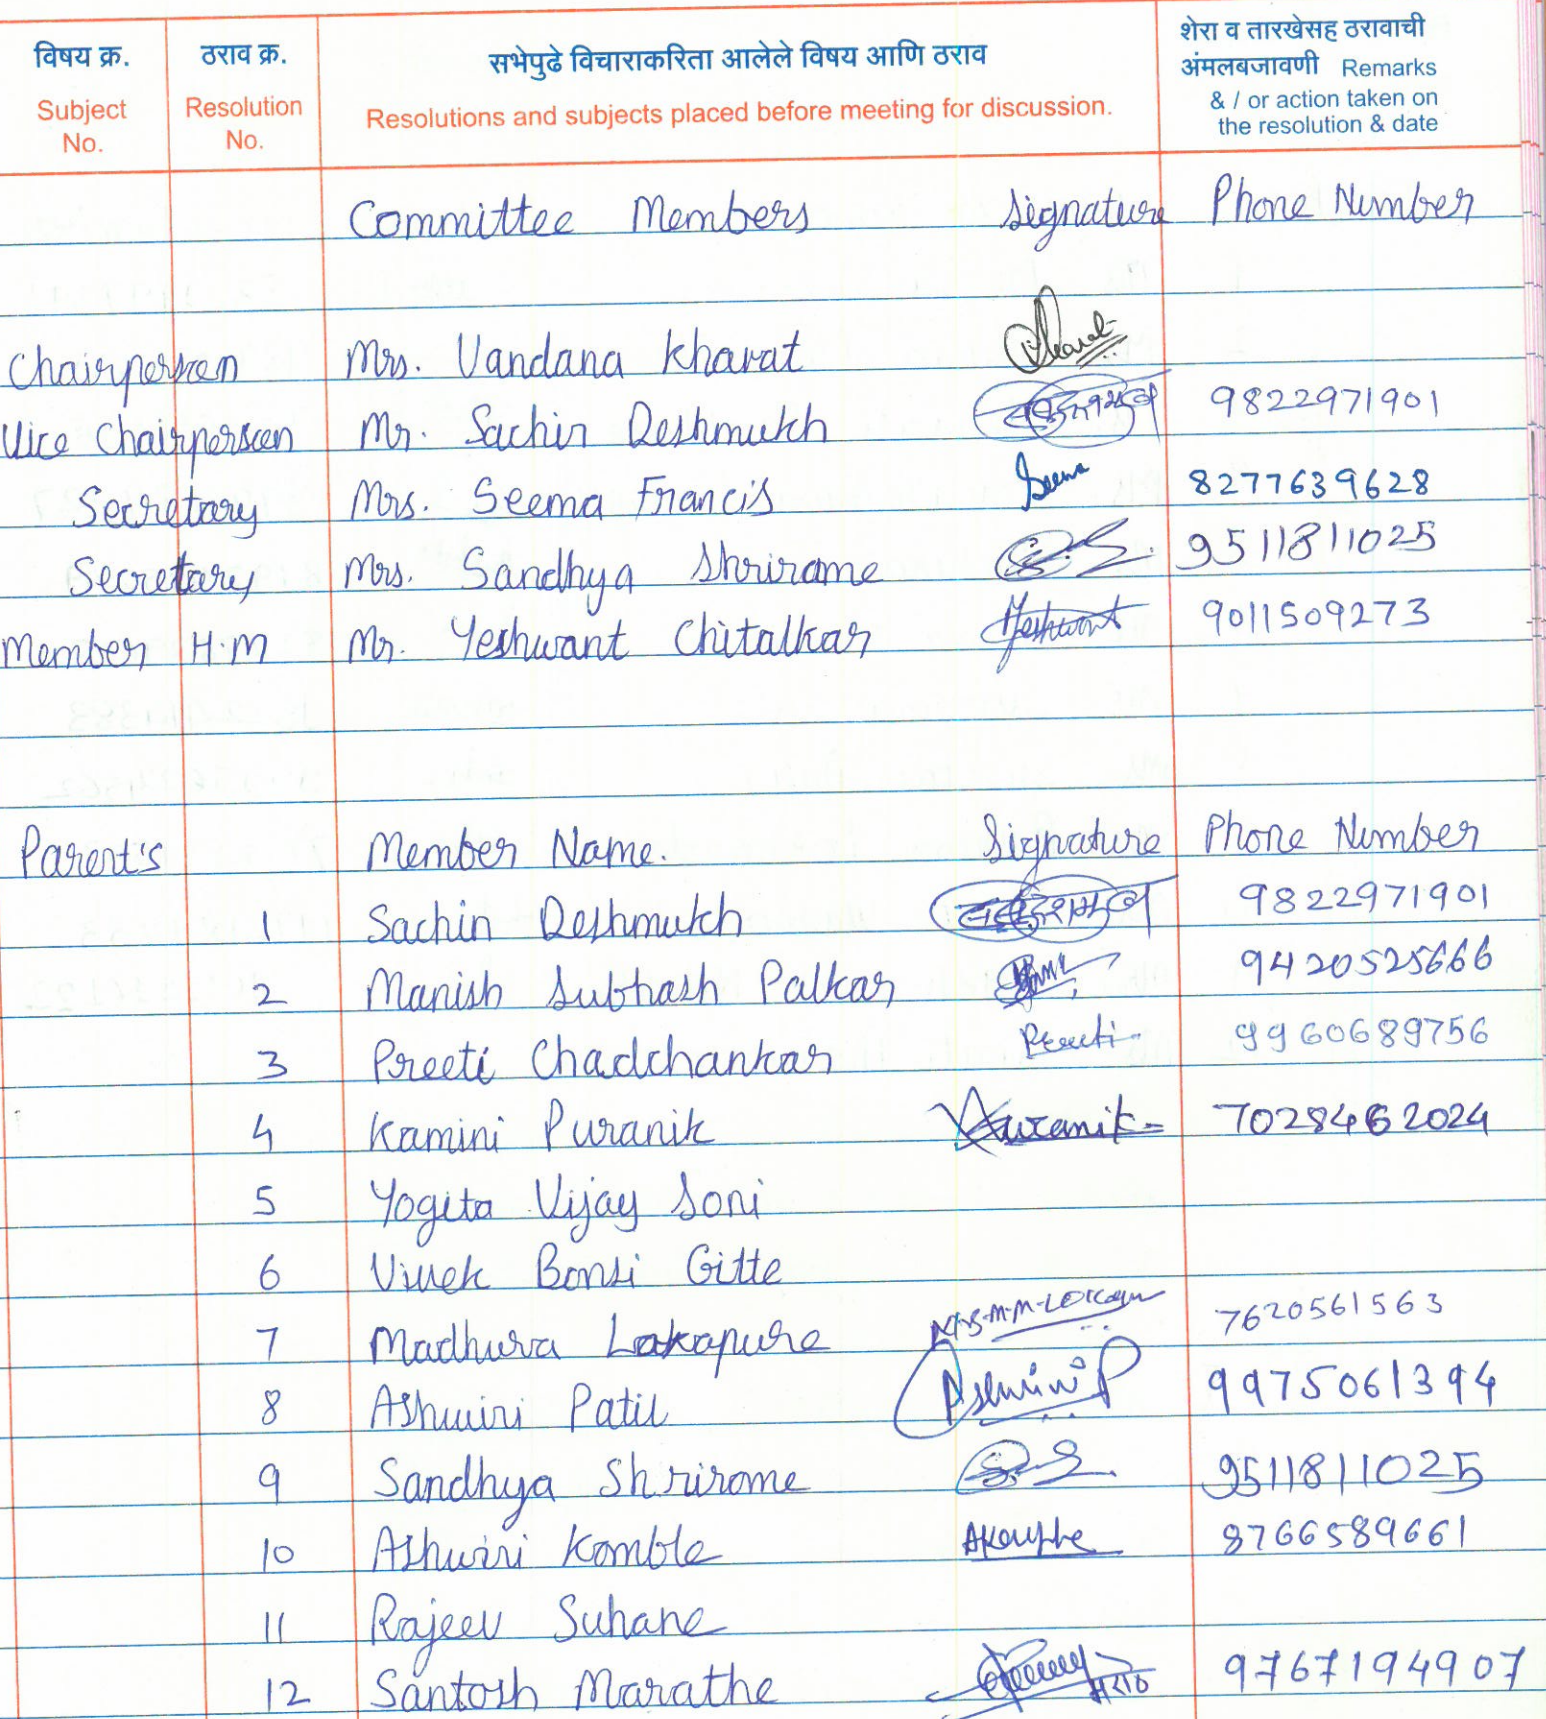 विषय क्र. ठराव क्र. सभेपुढे विचाराकरिता आलेले विषय आणि ठराव शेरा व तारखेसह ठरावाची
अंमलबजावणी Remarks
Subject Resolution Resolutions and subjects placed before meeting for discussion. & / or action taken on
No. No. the resolution & date
Committee Members Signature Phone Number
Chairperson Mrs. Vandana Kharat
Vice Chairperson Mr. Sachin Deshmukh 9822971901
Secretary Mrs. Seema Francis Seema 8277639628
Secretary Mrs. Sandhya Shrirame 9511811025
Member H.M Mr. Yeshwant Chitalkar Yeshwant 9011509273
Parent's Member Name. Signature Phone Number
1 Sachin Deshmukh 9822971901
2 Manish Subhash Palkar 9420525666
3 Preeti Chadchankar Preeti 9960689756
4 Kamini Puranik Puranik 7028462024
5 Yogita Vijay Soni
6 Vivek Bansi Gitte
7 Madhura Lokapure 7620561563
8 Ashwini Patil Ashwini P 9975061394
9 Sandhya Shrirame 9511811025
10 Ashwini Kamble AKamble 8766589661
11 Rajeev Suhane
12 Santosh Marathe 9767194907